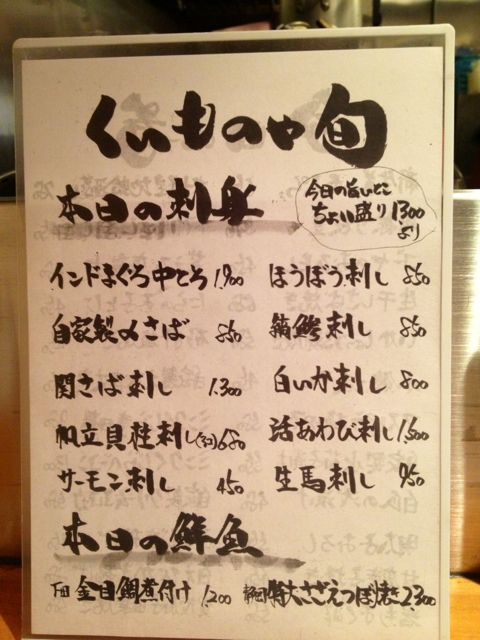 くいものや旬
本日の刺身
今日の旨いとこ
ちょい盛り 1300
より
インドまぐろ中とろ 1,900
自家製〆さば 850
関さば刺し 1300
帆立貝柱刺し 680
サーモン刺し 450
ほうぼう刺し 850
刺し 850
白いか刺し 800
活あわび刺し 1,500
生馬刺し 950
本日の鮮魚
下田 金目鯛煮付け 1,200
静岡 特大さざえつぼ焼き 2,300